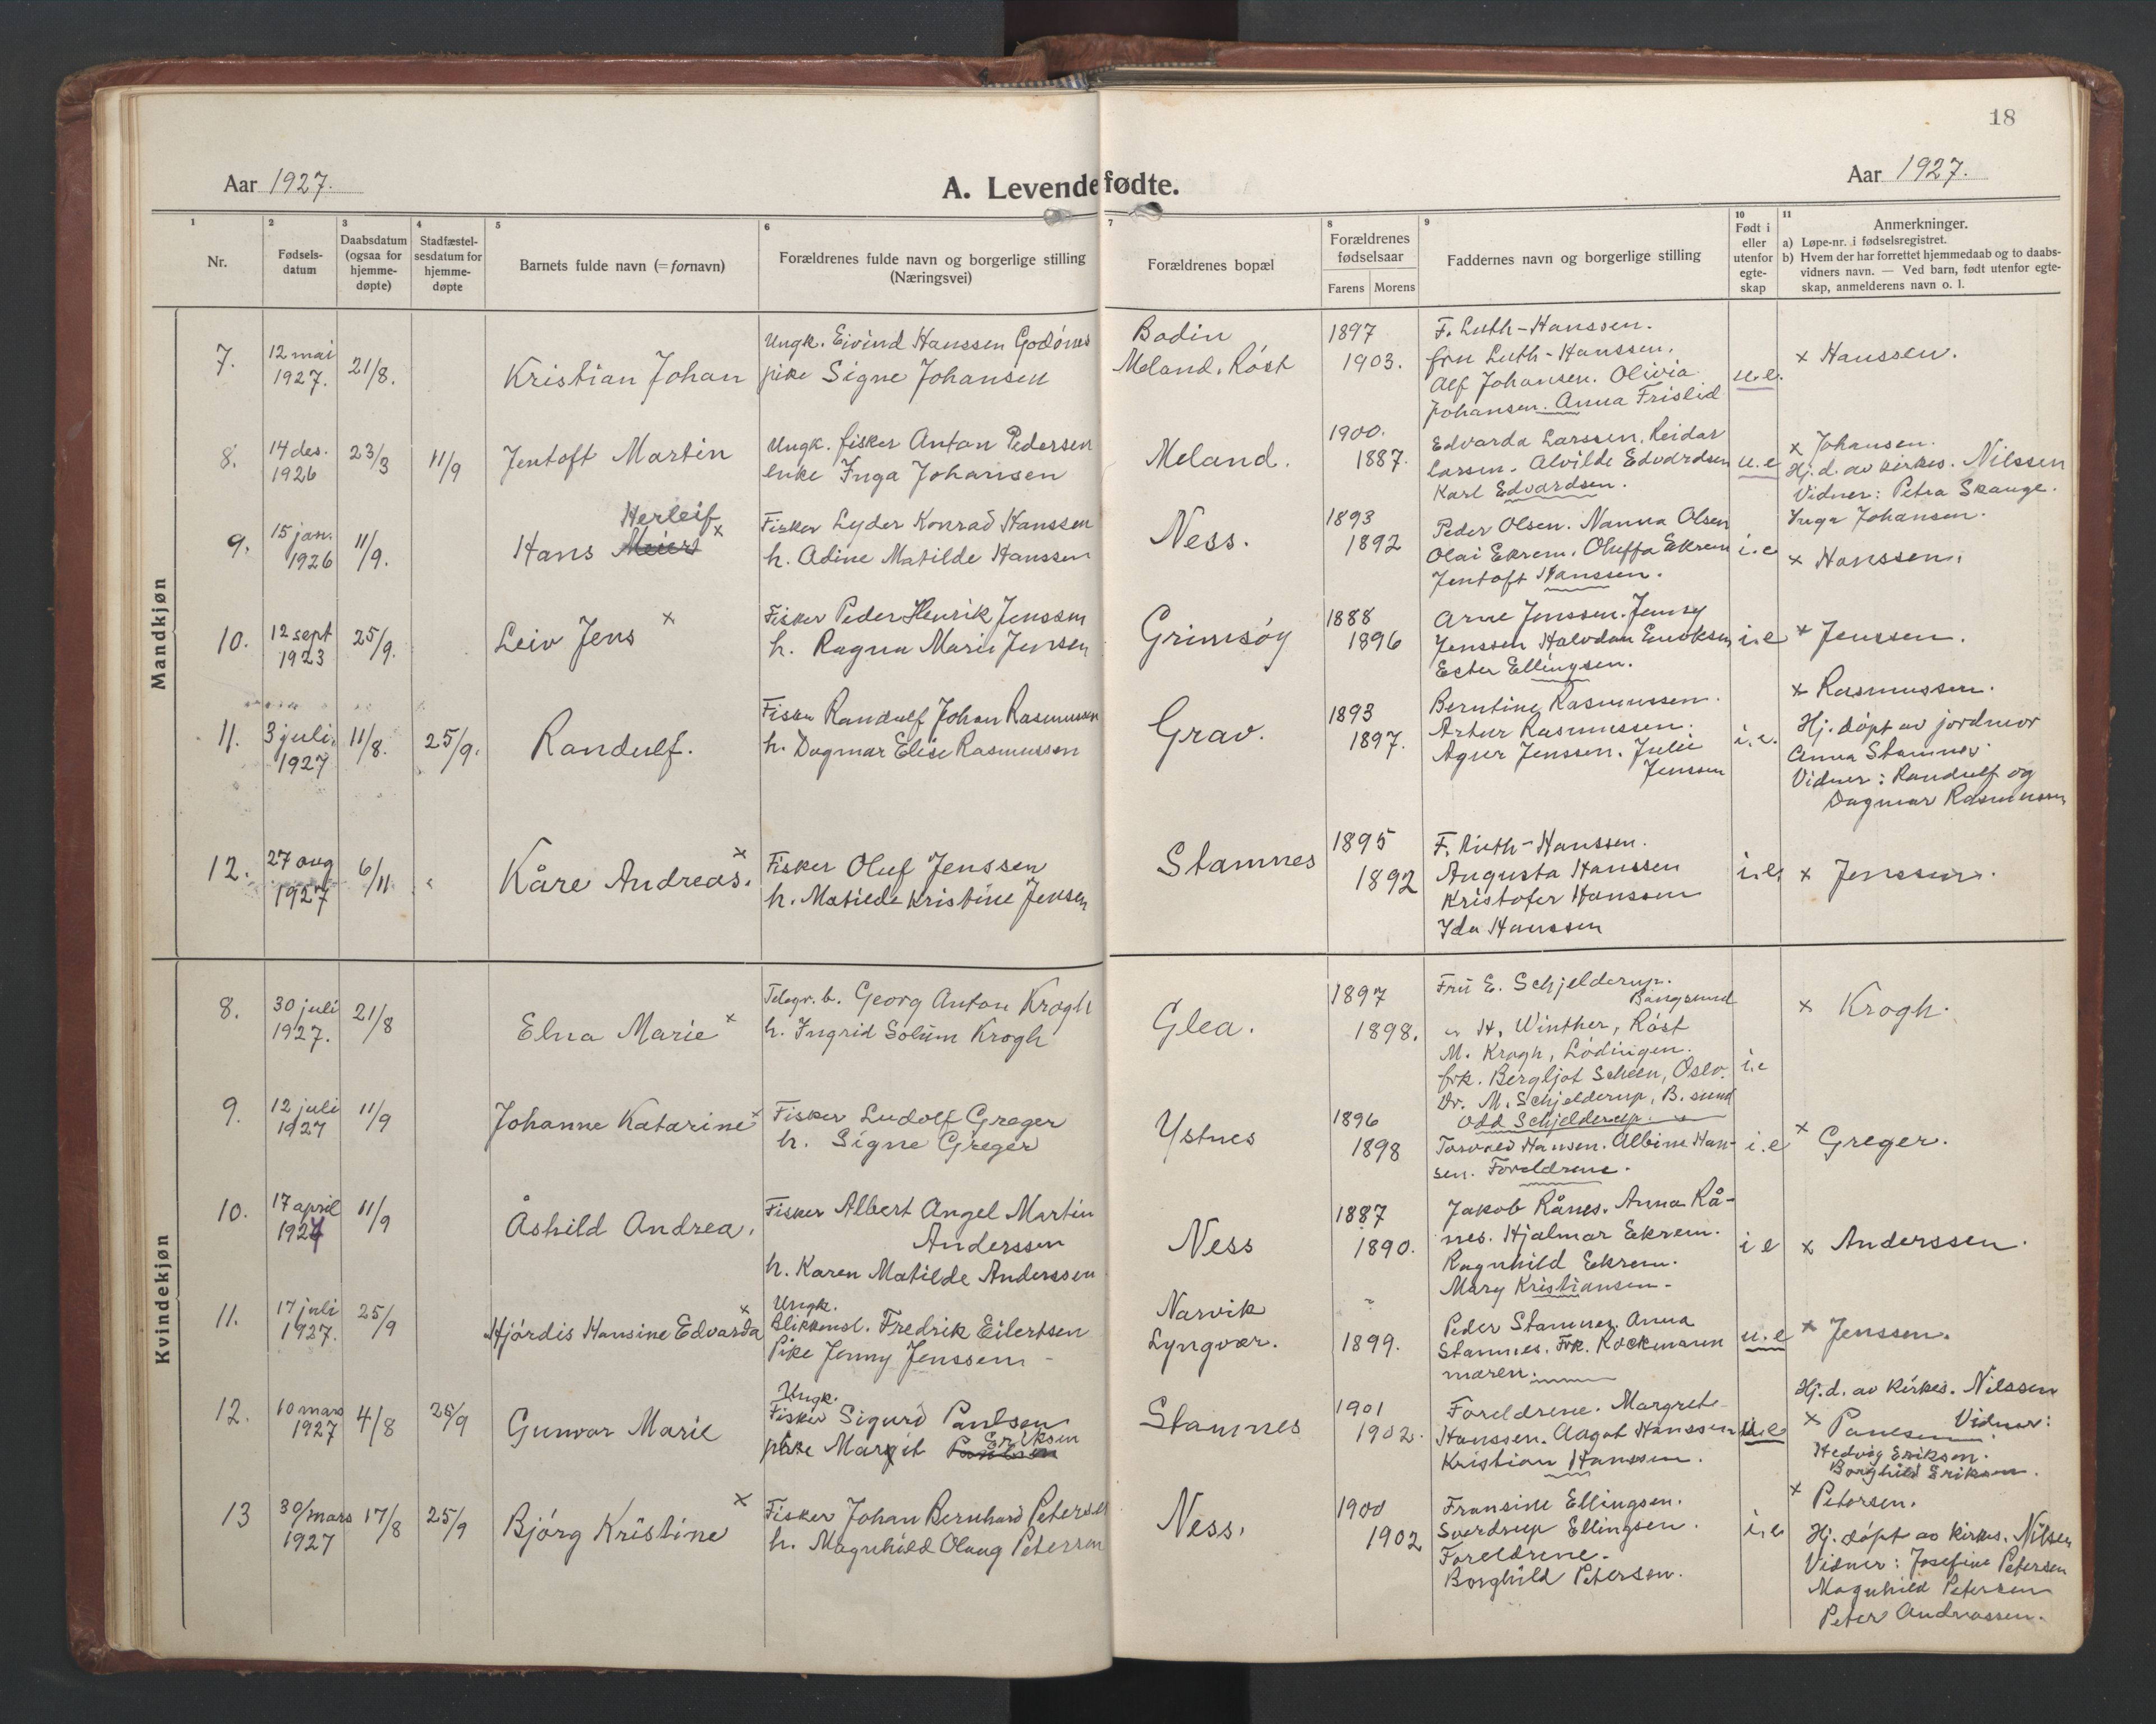 18
Aar 1927.
A. Levendefødte.
Aar 1927.
1
2
3
4
5
6
7
8
9
10
11
Nr.
Fødsels-
datum
Daabsdatum
(ogsaa for
hjemme-
døpte)
Stadfæstel-
sesdatum for
hjemme-
døpte
Barnets fulde navn (= fornavn)
Forældrenes fulde navn og borgerlige stilling
(Næringsvei)
Forældrenes bopæl
Forældrenes
fødselsaar
Farens
Morens
Faddernes navn og borgerlige stilling
Født i
eller
utenfor
egte-
skap
Anmerkninger.
a) Løpe-nr. i fødselsregistret.
b) Hvem der har forrettet hjemmedaab og to daabs-
vidners navn. — Ved barn, født utenfor egte-
skap, anmelderens navn o. l.
Mandkjøn
7.
12 mai
1927.
21/8.
Kristian Johan
Ungk. Eivind Hanssen Godönes
pike Signe Johansen
Bodin
Meland. Röst
1897
1903.
F. Luth-Hanssen.
fru Luth-Hanssen.
Alf Johansen. Olivia
Johansen. Anna Frislid
u.e.
x Hanssen.
8.
14 des.
1926
23/3
11/9
Jentoft Martin
Ungk. fisker Anton Pedersen
enke Inga Johansen
Meland.
1900.
1887.
Edvarda Larssen. Reidar
Larsen. Alvilde Edvardsen
Karl Edvardsen.
u.e
x Johansen.
Hj.d. av kirkes. Nilssen
Vidner: Petra Skauge.
Inga Johansen.
9.
15 jan.
1926
11/9.
Herleif x
Hans Meiers
Fisker Lyder Konrad Hanssen
h. Adine Matilde Hanssen
Ness.
1893
1892
Peder Olsen. Nanna Olsen
Olai Ekrem. Oluffa Ekrem
Jentoft Hanssen.
i.e
x Hanssen.
10.
12 sept
1923
25/9.
Leiv Jens x
Fisker Peder Henrik Jenssen
h. Ragna Marie Jensen
Grimsöy
1888
1896
Arne Jenssen. Jenny
Jenssen Halvdan Enoksen
Ester Ellingsen.
i.e
x Jenssen.
11.
3 juli.
1927
11/8.
25/9.
Randulf.
Fisker Randulf Johan Rasmussen
h. Dagmar Elise Rasmussen
Grav.
1893
1897.
Berntine Rasmussen.
Artur Rasmussen.
Agner Jenssen. Julie
Jenssen
i.e.
x Rasmussen.
Hj. döpt av jordmor
Anna Stamnes.
Vidner: Randulf og
Dagmar Rasmussen
12.
27 aug
1927
6/11.
Kåre Andreas. x
Fisker Oluf Jenssen
h. Matilde Kristine Jensen
Stamnes
1895
1892
F. Luth-Hanssen.
Augusta Hanssen
Kristofer Hanssen
Ida Hanssen
i.e.
x Jenssen.
Kvindekjøn
8.
30 juli
1927.
21/8
Elna Marie x
Telegr. b. Georg Anton Krogh
h. Ingrid Solum Krogh
Glea.
1897
1898.
Fru E. Schjelderup.
Bangsund
" H. Winther, Röst
M. Krogh, Lödingen.
frk. Bergljot Scheen, Oslo.
Dr. M. Schjelderup, B. sund
Odd Schjelderup.
i.e
x Krogh.
9.
12 juli
1927
11/9
Johanne Katarine x
Fisker Ludolf Greger
h. Signe Greger
Ystnes
1896
1898
Torvald Hansen. Albine Han-
sen. Foreldrene.
i.e
x Greger.
10.
17 april
1927
11/9
Åshild Andrea.
Fisker Albert Angel Martin
Anderssen
h. Karen Matilde Anderssen
Ness
1887
1890.
Jakob Rånes. Anna Rå-
nes. Hjalmar Ekrem.
Ragnhild Ekrem.
Mary Kristiansen.
i e
x Anderssen.
11.
17 juli
1927.
25/9
Hjördis Hansine Edvarda x
Ungk.
Blikkensl. Fredrik Eilertsen
Pike Jenny Jenssen
Narvik
Lyngvær.
"
1899.
Peder Stamnes. Anna
Stamnes. Frk. Kockmaren
maren.
u.e
x Jenssen.
12.
10 mars
1927
4/8
25/9
Gunvor Marie
Ungk.
Fisker Sigurd Paulsen
Eriksen
pike Margit Paulsen
Stamnes
1901
1902.
Foreldrene. Margrete
Hanssen. Aagot Hanssen
Kristian Hanssen.
u.e
Hj.d. av kirkes. Nilssen
x Paulsen Vidner:
Hedvig Eriksen.
Borghild Eriksen.
13
30/mars
1927
17/8
25/9
Björg Kristine x
Fisker Johan Bernhard Petersen
h. Magnhild Olaug Petersen
Ness.
1900
1902
Fransine Ellingsen.
Sverdrup Ellingsen.
Foreldrene.
Borghild Petersen.
i.e
x Petersen.
Hj. döpt av kirkes. Nilsen
Vidner: Josefine Petersen
Magnhild Petersen
Peter Andreassen.